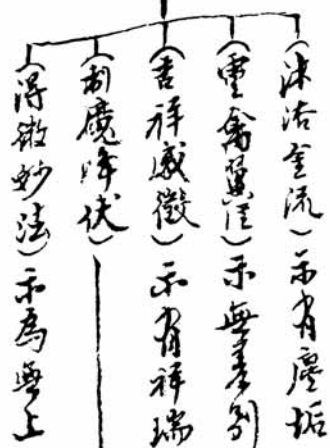 (沐浴金流)示有塵垢
(靈禽翼從)示無差別
(吉祥感徵)示有祥瑞
(制魔降伏)
(得微妙法)示為無上